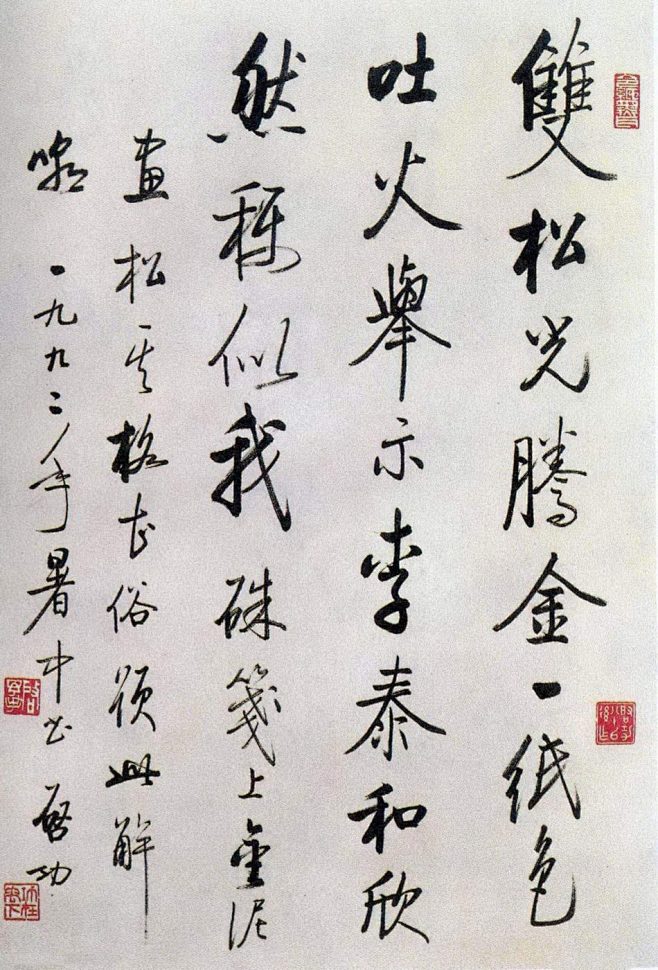 雙松光騰金一紙色
吐火舉示李泰和欣
然稱似我 硃箋上金泥
畫松其格甚俗預此解
嘲 一九九二年暑中書 啓功